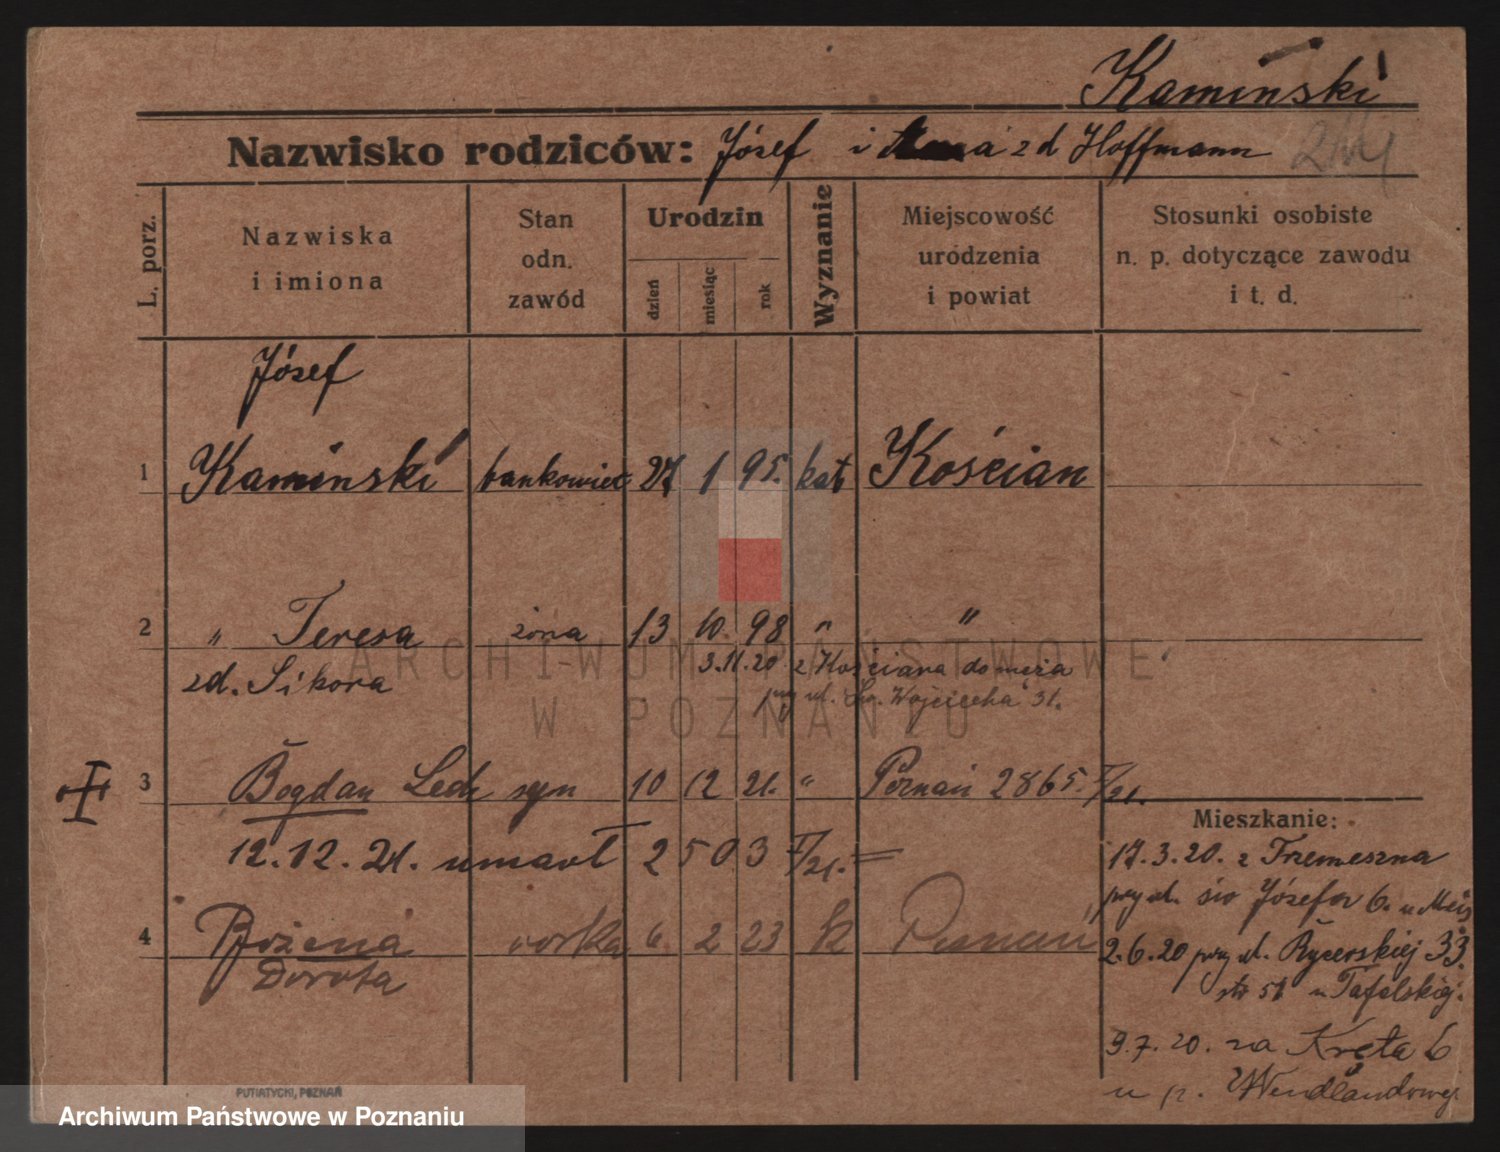 Kamiński
Nazwisko rodziców: Józef i zd Hoffmann
L. porz.
Nazwiska i imiona
Stan odn. zawód
Urodzin
dzień
miesiąc
rok
Wyznanie
Miejscowość urodzenia i powiat
Stosunki osobiste n. p. dotyczące zawodu i t. d.
Józef
1 Kamiński bankowiec 27 1 95. kat Kościan
2 " Teresa żona 13 10. 98 " "
zd. Sikora 3.11.20 z Kościana do męża
przy ul. Św. Wojciecha 31.
3 Bogdan Lech syn 10 12 21. " Poznań 2865. V/21.
12.12.21. umarł 2503 V/21.
Mieszkanie:
17.3.20. z Trzemeszna
przy ul. św Józefa 6. u
4 Bożena córka 6 2 23 k Poznań
Dorota
2.6.20 przy ul. Rycerskiej 33.
str 51 u Tafelskiej.
9.7.20. na Kręta 6
u p. Wendlandowej
PUTIATYCKI, POZNAŃ
ARCHIWUM PAŃSTWOWE
W POZNANIU
Archiwum Państwowe w Poznaniu